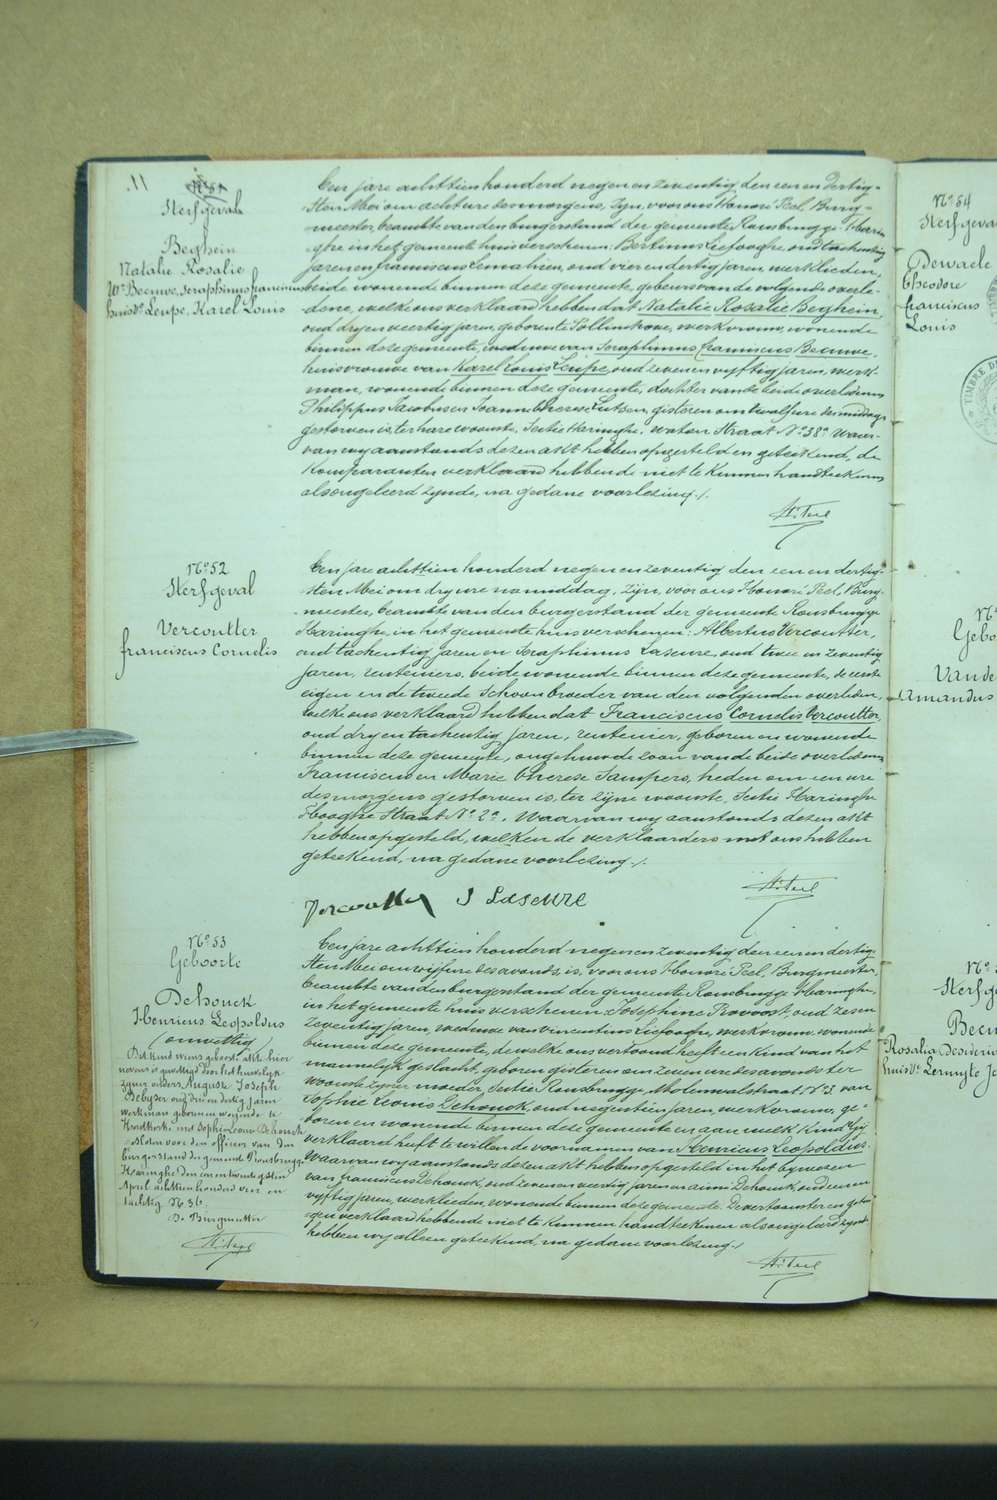 11.
N° 51
Sterfgeval
Beghein
Natalie Rosalie
We Becuwe, Seraphinus franciscus
huisve Leupe, Karel Louis
Een jare achttien honderd negen en zeventig den een en dertig-
sten Mei om acht ure des morgens, zyn, voor ons Honoré Peel, Burg-
meester, beambte van den burgerstand der gemeente Rousbrugge-Harin
ghe in het gemeente huis verschenen: Bertinus Liefooghe oud tachentig
jaren en franciscus Lemahieu, oud vier en dertig jaren, werklieden,
beide wonende binnen deze gemeente, gebeurs van de volgende overle-
dene, welke ons verklaard hebben dat Natalie Rosalie Beghein,
oud dry en veertig jaren, geboren te Pollinchove, werkvrouw, wonende
binnen deze gemeente, weduwe van Seraphinus franciscus Becuwe,
huisvrouwe van Karel Louis Leupe, oud zeven en vyftig jaren, werk-
man, wonende binnen deze gemeente, dochter van de beide overledenen
Philippus Jacobus en Joanna therese Lutsen, gisteren om twalf ure des middags
gestorven is, ter hare woonste, Sectie Haringhe, Waten Straat N° 38a. Waar-
van wy aanstonds dezen akt hebben opgesteld en geteekend, de
komparanten verklaard hebbende niet te kunnen handteekenen
als ongeleerd zynde, na gedane voorlezing./.
H. Peel
N° 52
Sterfgeval
Vercoutter
franciscus Cornelis
Een jare achttien honderd negen en zeventig den een en dertig-
sten Mei om dry ure namiddag, zijn, voor ons Honoré Peel, Burg-
meester, beambte van den burgerstand der gemeente Rousbrugge
Haringhe, in het gemeente huis verschenen: Albertus Vercoutter,
oud tachentig jaren en Seraphinus Laseure, oud twee en zeventig
jaren, renteniers, beide wonende binnen deze gemeente, de eerste
eigen en de tweede Schoon broeder van den volgenden overleden,
welke ons verklaard hebben dat Franciscus Cornelis Vercoutter,
oud dry en tachentig jaren, rentenier, geboren en wonende
binnen deze gemeente, ongehuwde zoon van de beide overledenen
Franciscus en Marie therese Sampers, heden om een ure
des morgens gestorven is, ter zijne woonste, Sectie Haringhe
Hooghe Straat N° 2a. Waarvan wy aanstonds dezen akt
hebben opgesteld, welken de verklaarders met ons hebben
geteekend, na gedane voorlezing./.
H. Peel
Vercoutter S Laseure
N° 53
Geboorte
Dehonck
Henricus Leopoldus
(onwettig)
Dit kind wiens geboorte akte hier
nevens is gewettigd door het huwelijk
zyner ouders August Joseph
Debyser oud drie en dertig jaren
werkman geboren en wonende te
Krombeke met Sophie Leonie Dehonck
gesloten voor den officier van den
burgerstand der gemeente Rousbrugge
Haringhe den een en twintigsten
April achttien honderd vier en
tachtig N° 36.
De Burgmeester
H. Peel
Een jare achttien honderd negen en zeventig den een en dertig-
sten Mei om vyf ure des avonds, is, voor ons Honoré Peel, Burgmeester,
beambte van den burgerstand der gemeente Rousbrugge Haringhe,
in het gemeente huis verschenen Josephine Provoost, oud zes en
zeventig jaren, weduwe van Vincentius Liefooghe, werkvrouw, wonende
binnen deze gemeente, dewelke ons vertoond heeft een kind van het
mannelijk geslacht, geboren gisteren om zeven ure des avonds ter
woonste zyner moeder, Sectie Rousbrugge, Molenwalstraat N° 3. van
Sophie Leonie Dehonck, oud negentien jaren, werkvrouw, ge-
boren en wonende binnen deze gemeente en aan welk kind zy
verklaard heeft te willen de voornamen van Henricus Leopoldus.
Waarvan wy aanstonds dezen akt hebben opgesteld in het bywezen
van franciscus Dehonck, oud zeven en veertig jaren en Dehonck, oud een en
vyftig jaren, werklieden, wonende binnen deze gemeente. De vertoonster en getui-
gen verklaard hebbende niet te kunnen handteekenen als ongeleerd zynde
hebben wy alleen geteekend, na gedane voorlezing./
H. Peel
N° 54
Sterfgeva
Dewaele
Theodore
franciscus
Louis
TIMBRE DE
N°
Gebo
Vande
Amandus
N°
Sterfge
Becu
Rosalia Desideria
huisve Lermyte